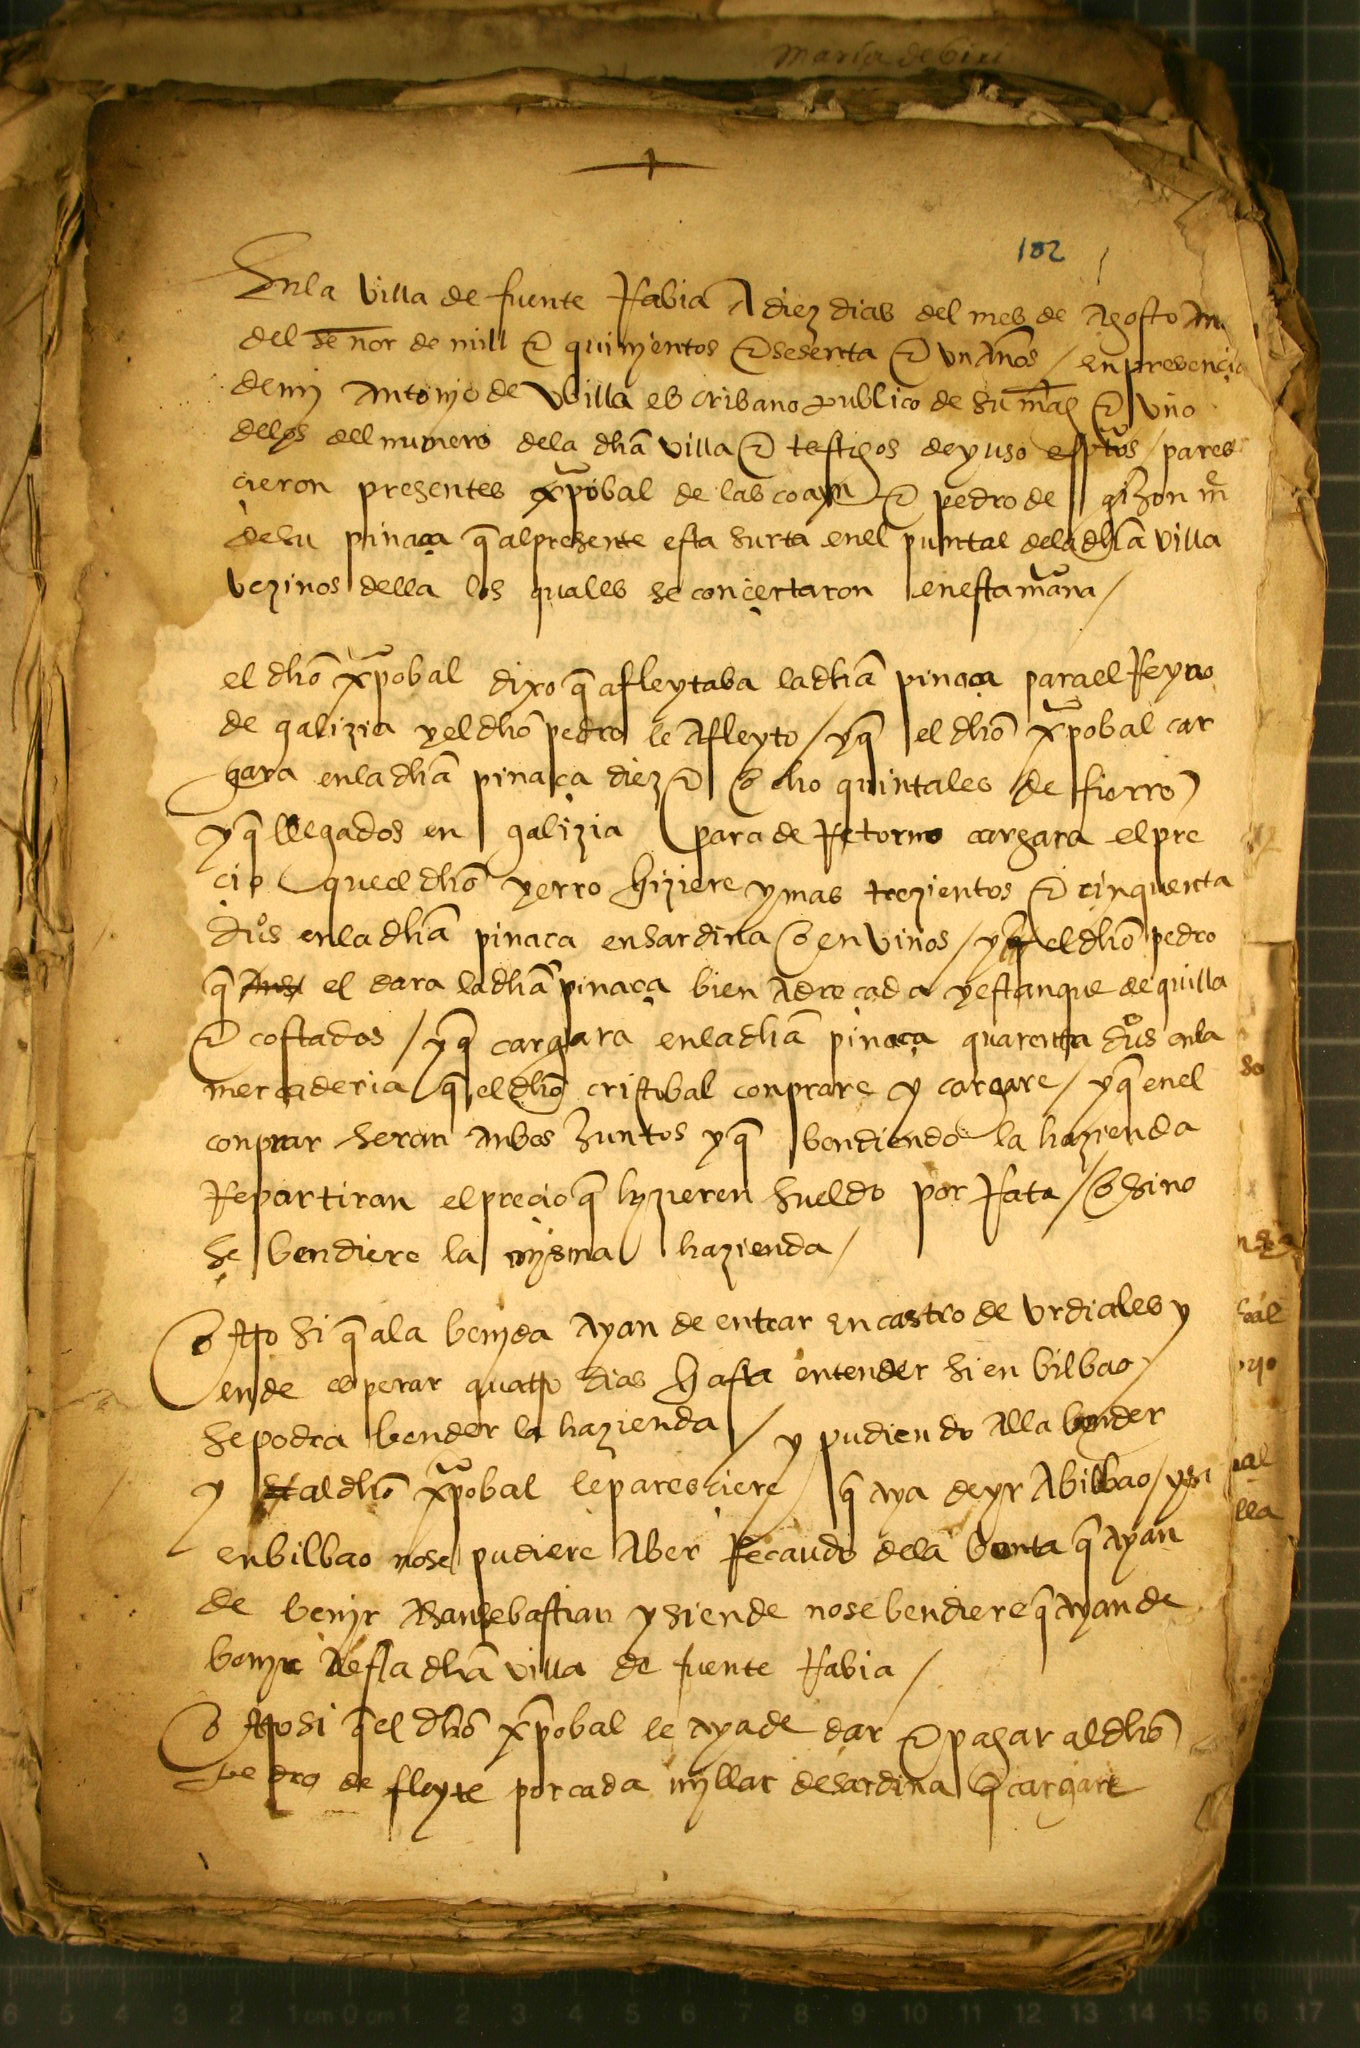 Maria de
102
En la villa de fuente Rabia A diez dias del mes de Agosto An
del señor de mill e quinientos e sesenta e un Años / en presencia
de mi Antonio de Ubilla escribano publico de su mag e uno
de los del numero de la dha villa e testigos de yuso esptos / pares
cieron presentes xpobal de lascoayn e pedro de gizon mе
de su pinaça q̃ al presente esta surta en el puntal de la dha villa
vezinos della los quales se concertaron en esta mana /
el dho xpobal dixo q̃ afleytaba la dha pinaça para el Reyno
de galizia y el dho pedro le Afleyto / y q̃ el dho xpobal car
gara en la dha pinaça diez e ocho quintales de fierro
y q̃ llegados en galizia para de Retorno cargara el pre
cio que el dho yerro hiziere y mas trezientos e cinquenta
dus en la dha pinaca en sardina o en vinos / y q̃ el dho pedro
q̃ el dara la dha pinaça bien Adreçada y estanque de quilla
e costados / y q̃ cargara en la dha pinaça quarenta dus en la
mercaderia q̃ el dho cristobal conprare y cargare / y q̃ en el
conprar seran Anbos Juntos y q̃ bendiendo la hazienda
Repartiran el precio q̃ hyzieren sueldo por Rata / o si no
se bendiere la mysma hazienda /
otro si q̃ a la benida Ayan de entrar en castro de Urdiales y
ende esperar quatro dias hasta entender si en bilbao
se podra bender la hazienda / y pudiendo Alla bender
y al dho xpobal le paresciere q̃ aya de yr A bilbao / y si
en bilbao no se pudiere Aber Recaudo de la benta q̃ Ayan
de benyr A san sebastian y si ende no se bendiere q̃ Ayan de
benyr A esta dha villa de fuente Rabia /
otro si q̃ el dho xpobal le aya de dar e pagar al dho
pedro de fleyte por cada myllar de sardina q̃ cargare